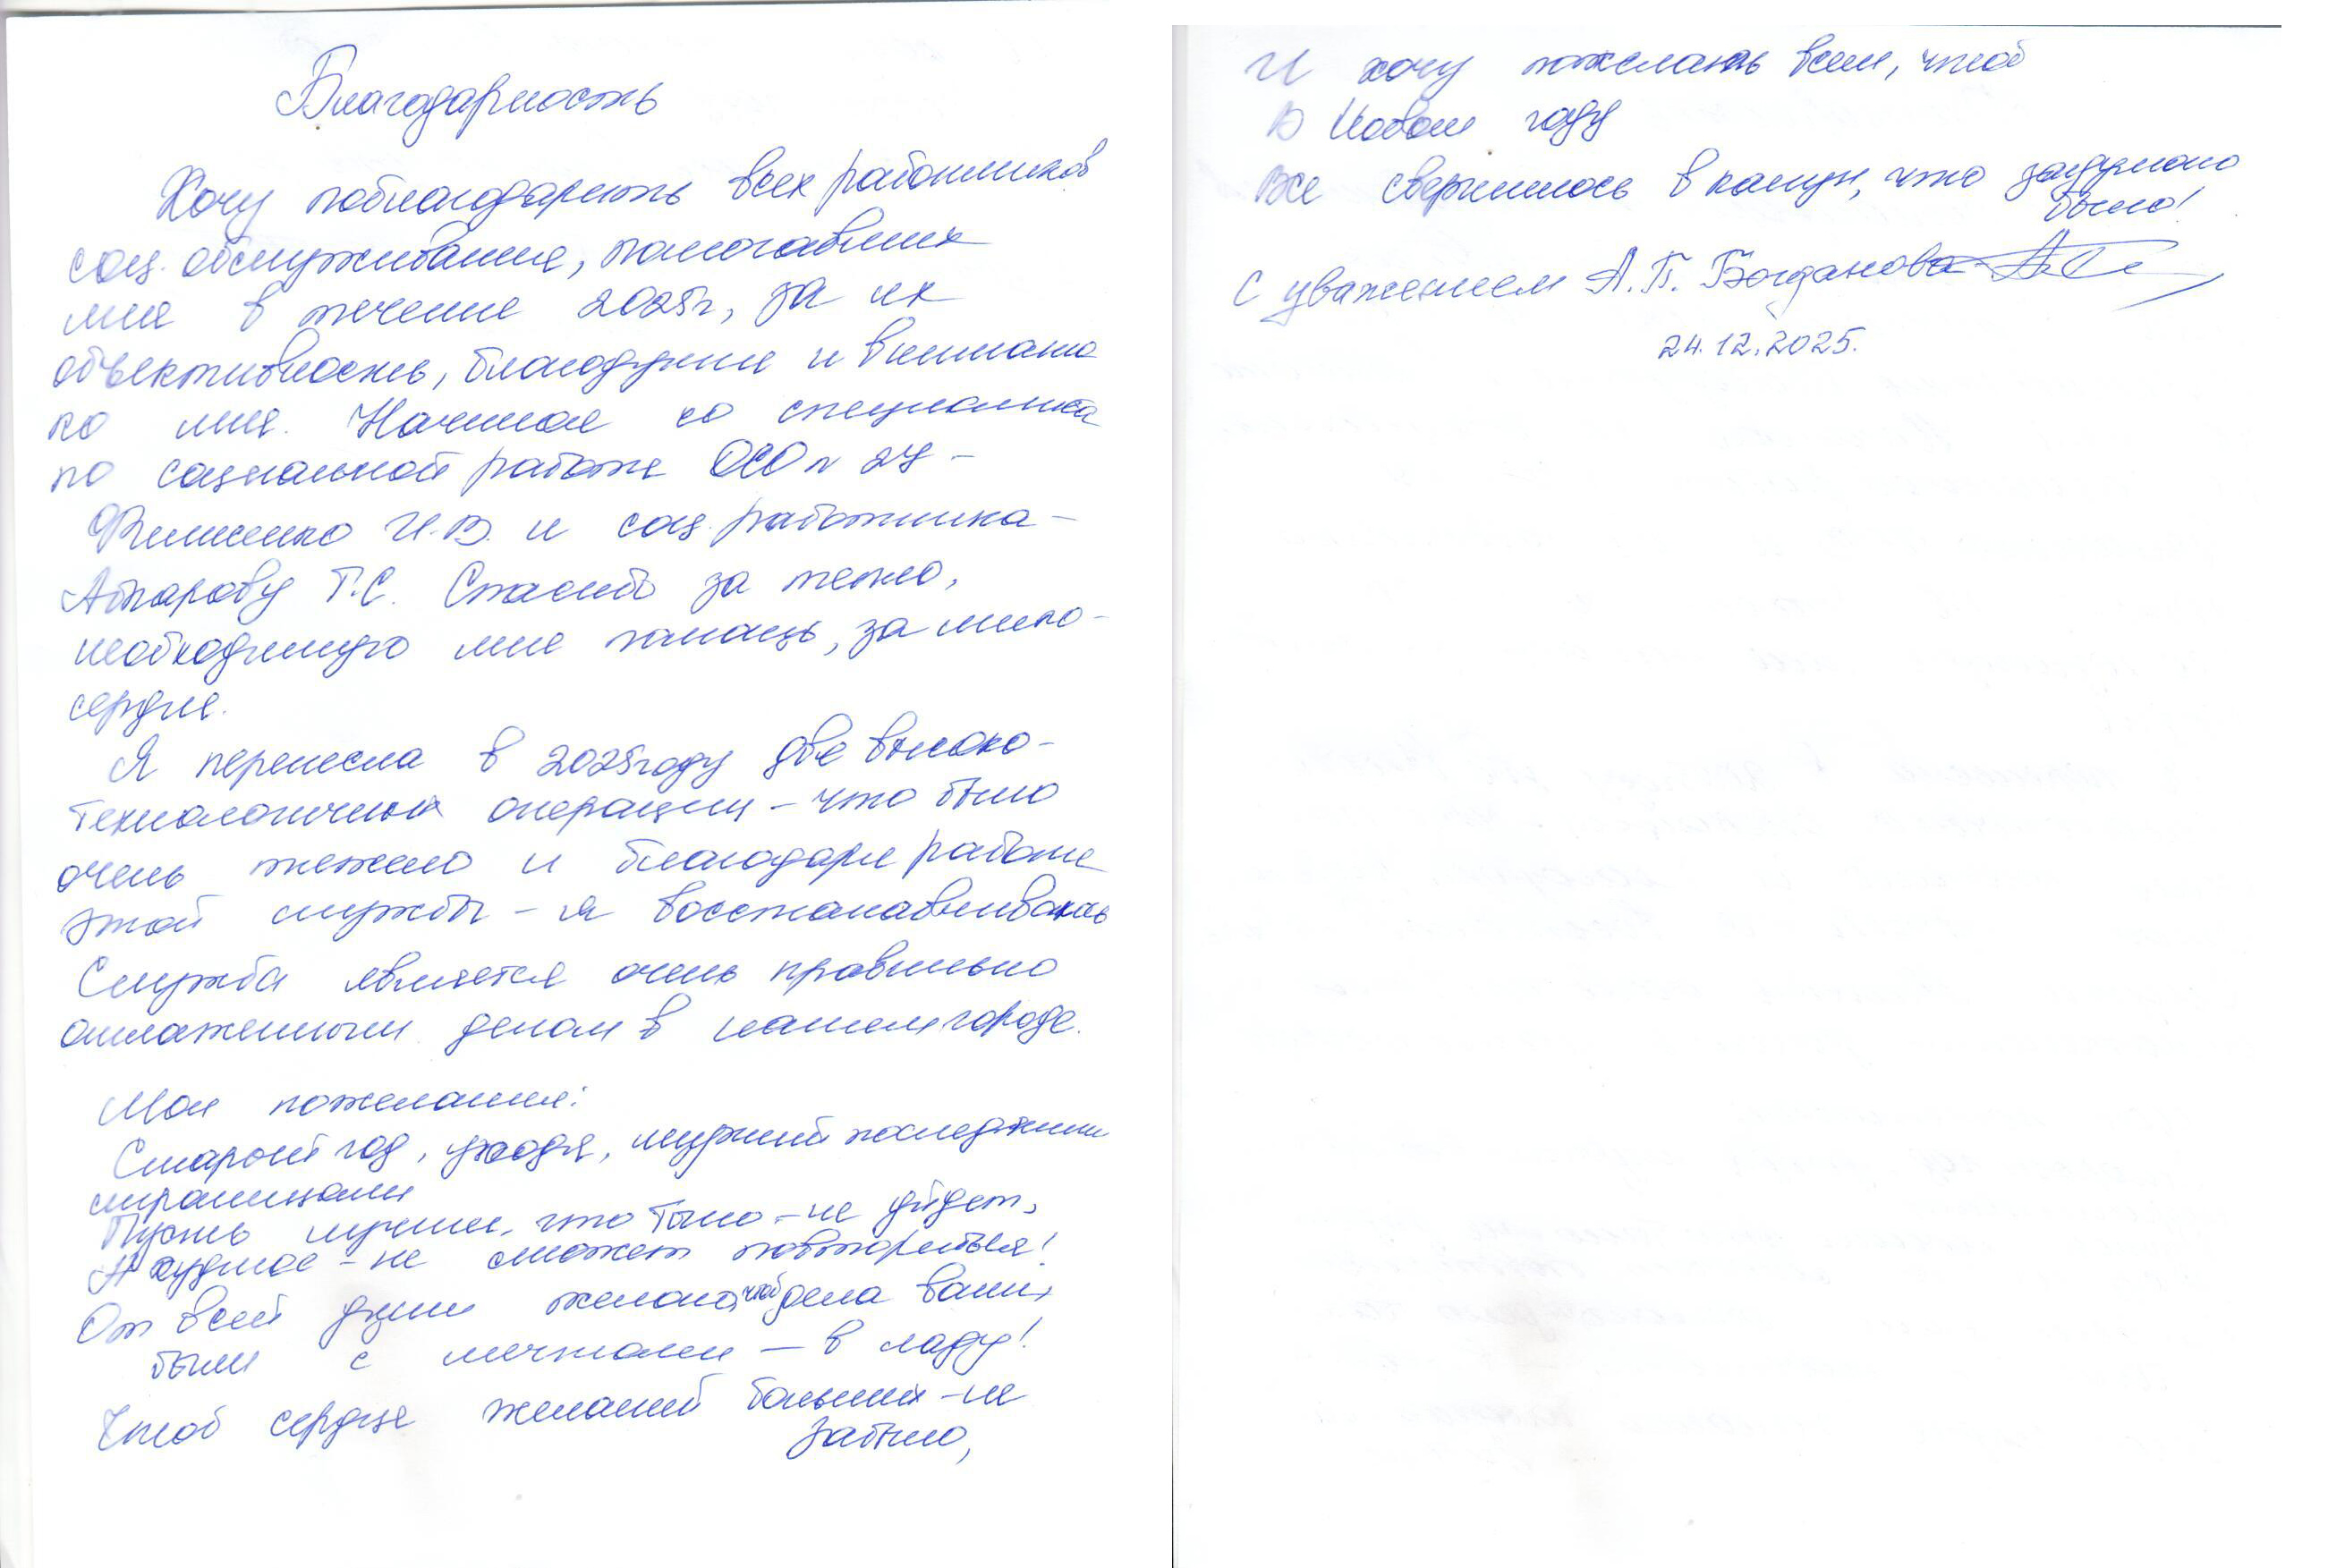 Благодарность
Хочу поблагодарить всех работников
соц. обслуживания, помогавших
мне в течение 2025г, за их
объективность, благодушие и внимание
ко мне. Начиная со специалиста
по социальной работе ОСО №
Филиенко И.В. и соц. работника –
Аббарову Г.С. Спасибо за тепло,
необходимую мне помощь, за мило-
сердие.
Я перенесла в 2025году две высоко-
технологичных операции – что было
очень тяжело и благодаря работе
этой службы – я восстанавливалась
Служба является очень правильно
отлаженным делом в нашем городе.
Мои пожелания:
Старый год, уходя, шуршит последними
страницами
Пусть лучшее, что было – не уйдет,
А худшее – не сможет повториться!
От всей души желаю, чтоб дела ваши,
были с мечтами – в ладу!
Чтоб сердце желаний больших – не
забыло,
И хочу пожелать всем, чтоб
В Новом году
Все свершилось в канун, что задумано
было!
С уважением А.Б. Богданова
24.12.2025.